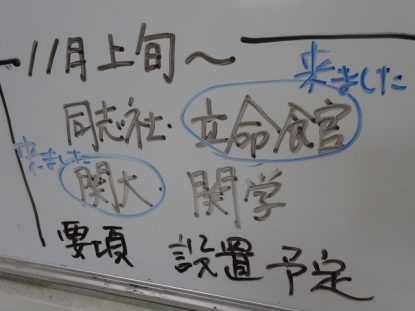 ~11月上旬~
来ました
同志社. 立命食官
来ました
関大. 関学
要項 設置予定